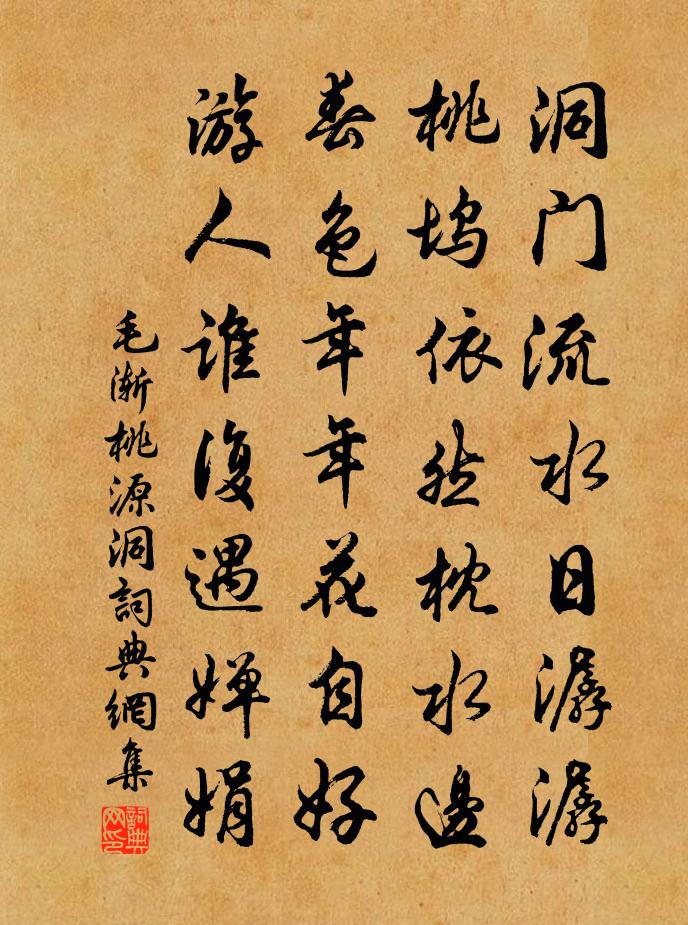 洞门流水日潺潺
桃坞依然枕水邊
春色年年花自好
游人谁復遇婵娟
毛渐桃源洞詞典網集
詞典网印